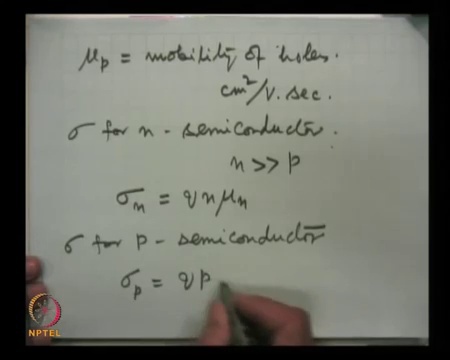 μp = mobility of holes.
cm²/V.sec.
σ for n - semiconductor.
n >> p
σn = qnμn
σ for p - semiconductor
σp = qp
NPTEL